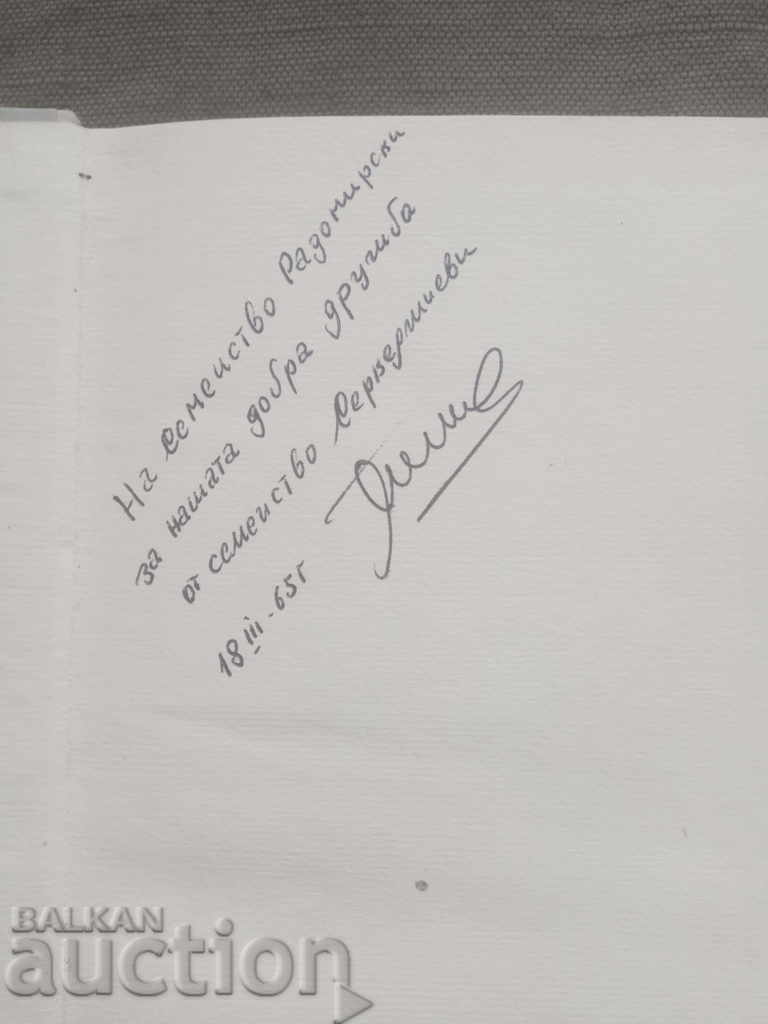 На семейство Радомирски
за нашата добра дружба
от семейство
18 III - 65 г
BALKAN
auction